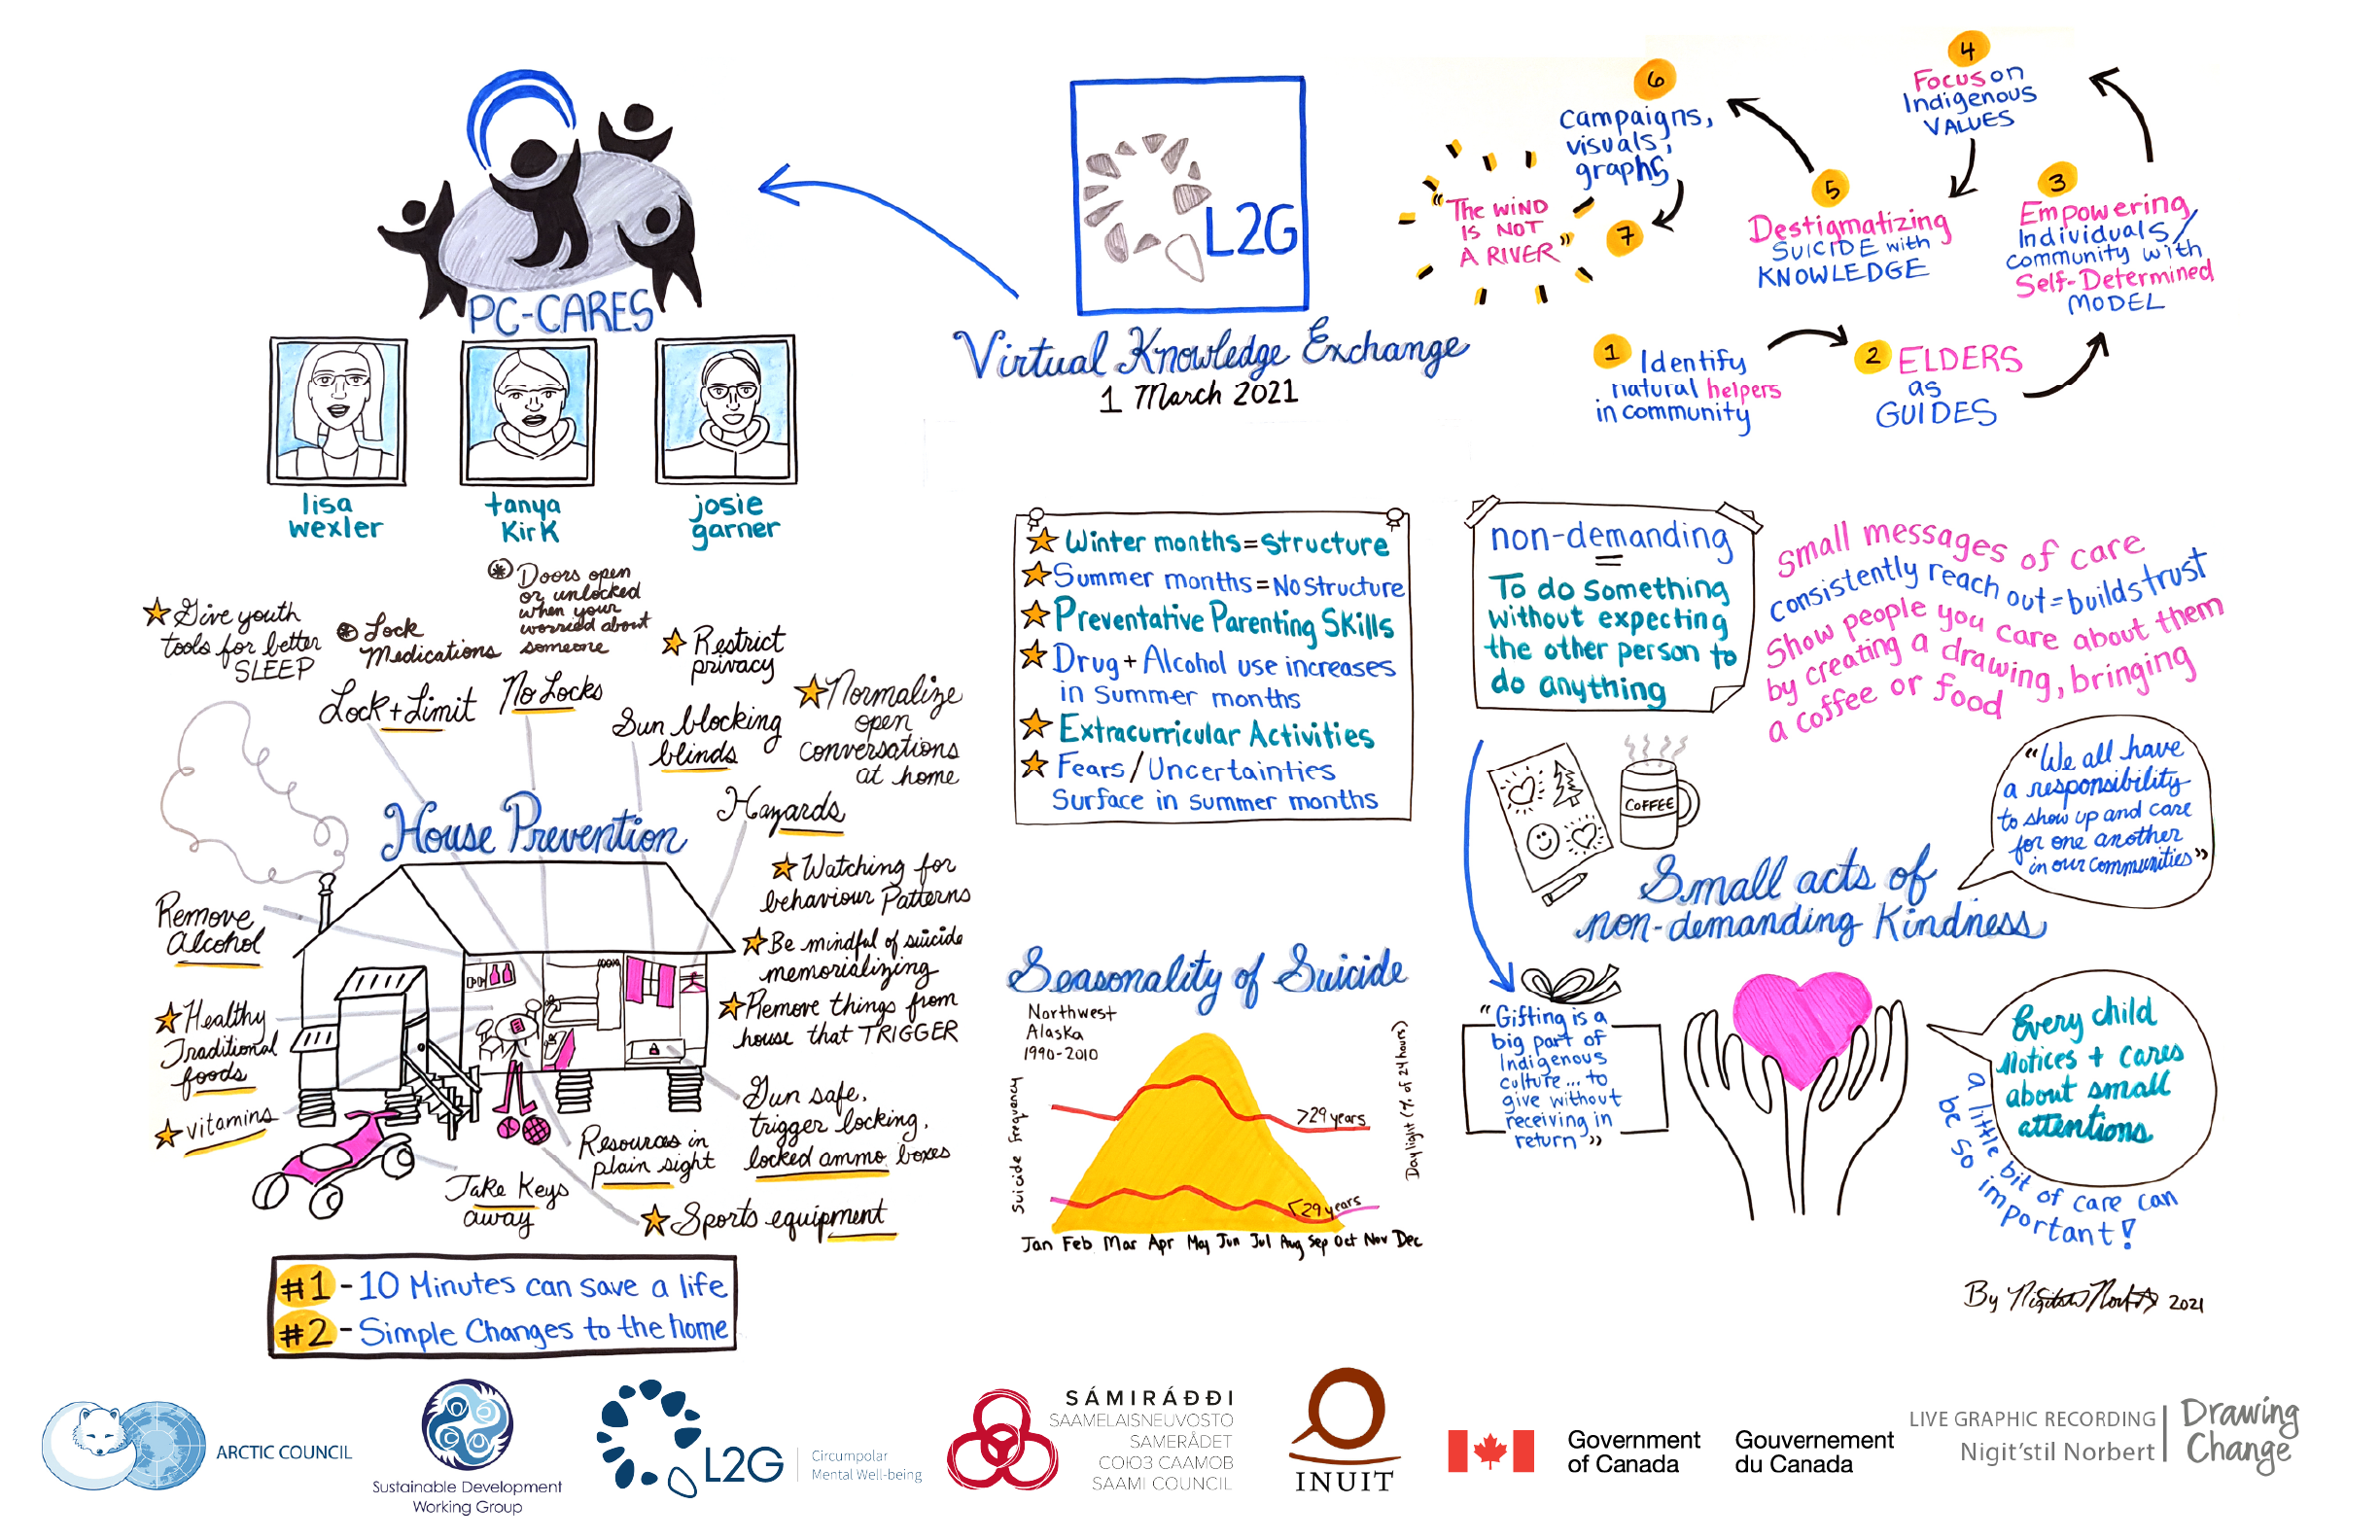 PC-CARES
lisa
wexler
tanya
Kirk
josie
garner
L2G
Virtual Knowledge Exchange
1 March 2021
1
Identify
natural helpers
in community
2
ELDERS
as
GUIDES
3
Empowering
Individuals/
community with
Self-Determined
MODEL
4
Focus on
Indigenous
VALUES
5
Destigmatizing
SUICIDE with
KNOWLEDGE
6
campaigns,
visuals,
graphs
7
"The WIND
IS NOT
A RIVER"
Give youth
tools for better
SLEEP
Lock
Medications
Doors open
or unlocked
when your
worried about
someone
Restrict
privacy
Lock + Limit
No Locks
Sun blocking
blinds
Normalize
open
conversations
at home
Hazards
House Prevention
Watching for
behaviour Patterns
Be mindful of suicide
memorializing
Remove things from
house that TRIGGER
Remove
Alcohol
Healthy
Traditional
foods
vitamins
Take Keys
away
Resources in
plain sight
Gun safe,
trigger locking,
locked ammo boxes
Sports equipment
#1 - 10 Minutes can save a life
#2 - Simple Changes to the home
Winter months = Structure
Summer months = No Structure
Preventative Parenting Skills
Drug + Alcohol use increases
in summer months
Extracurricular Activities
Fears / Uncertainties
Surface in summer months
Seasonality of Suicide
Northwest
Alaska
1990-2010
Suicide Frequency
Daylight (% of 24 hours)
>29 years
<29 years
Jan Feb Mar Apr May Jun Jul Aug Sep Oct Nov Dec
non-demanding
=
To do something
without expecting
the other person to
do anything
small messages of care
consistently reach out = builds trust
Show people you care about them
by creating a drawing, bringing
a coffee or food
COFFEE
"We all have
a responsibility
to show up and care
for one another
in our communities"
Small acts of
non-demanding Kindness
"Gifting is a
big part of
Indigenous
culture... to
give without
receiving in
return"
Every child
Notices + cares
about small
attentions
a little bit of care can
be so important!
By Nigit'stil Norbert 2021
ARCTIC COUNCIL
Sustainable Development
Working Group
L2G
Circumpolar
Mental Well-being
SÁMIRÁĐĐI
SAAMELAISNEUVOSTO
SAMERÅDET
СОЮЗ СААМОВ
SAAMI COUNCIL
INUIT
Government
of Canada
Gouvernement
du Canada
LIVE GRAPHIC RECORDING
Nigit'stil Norbert
Drawing
Change